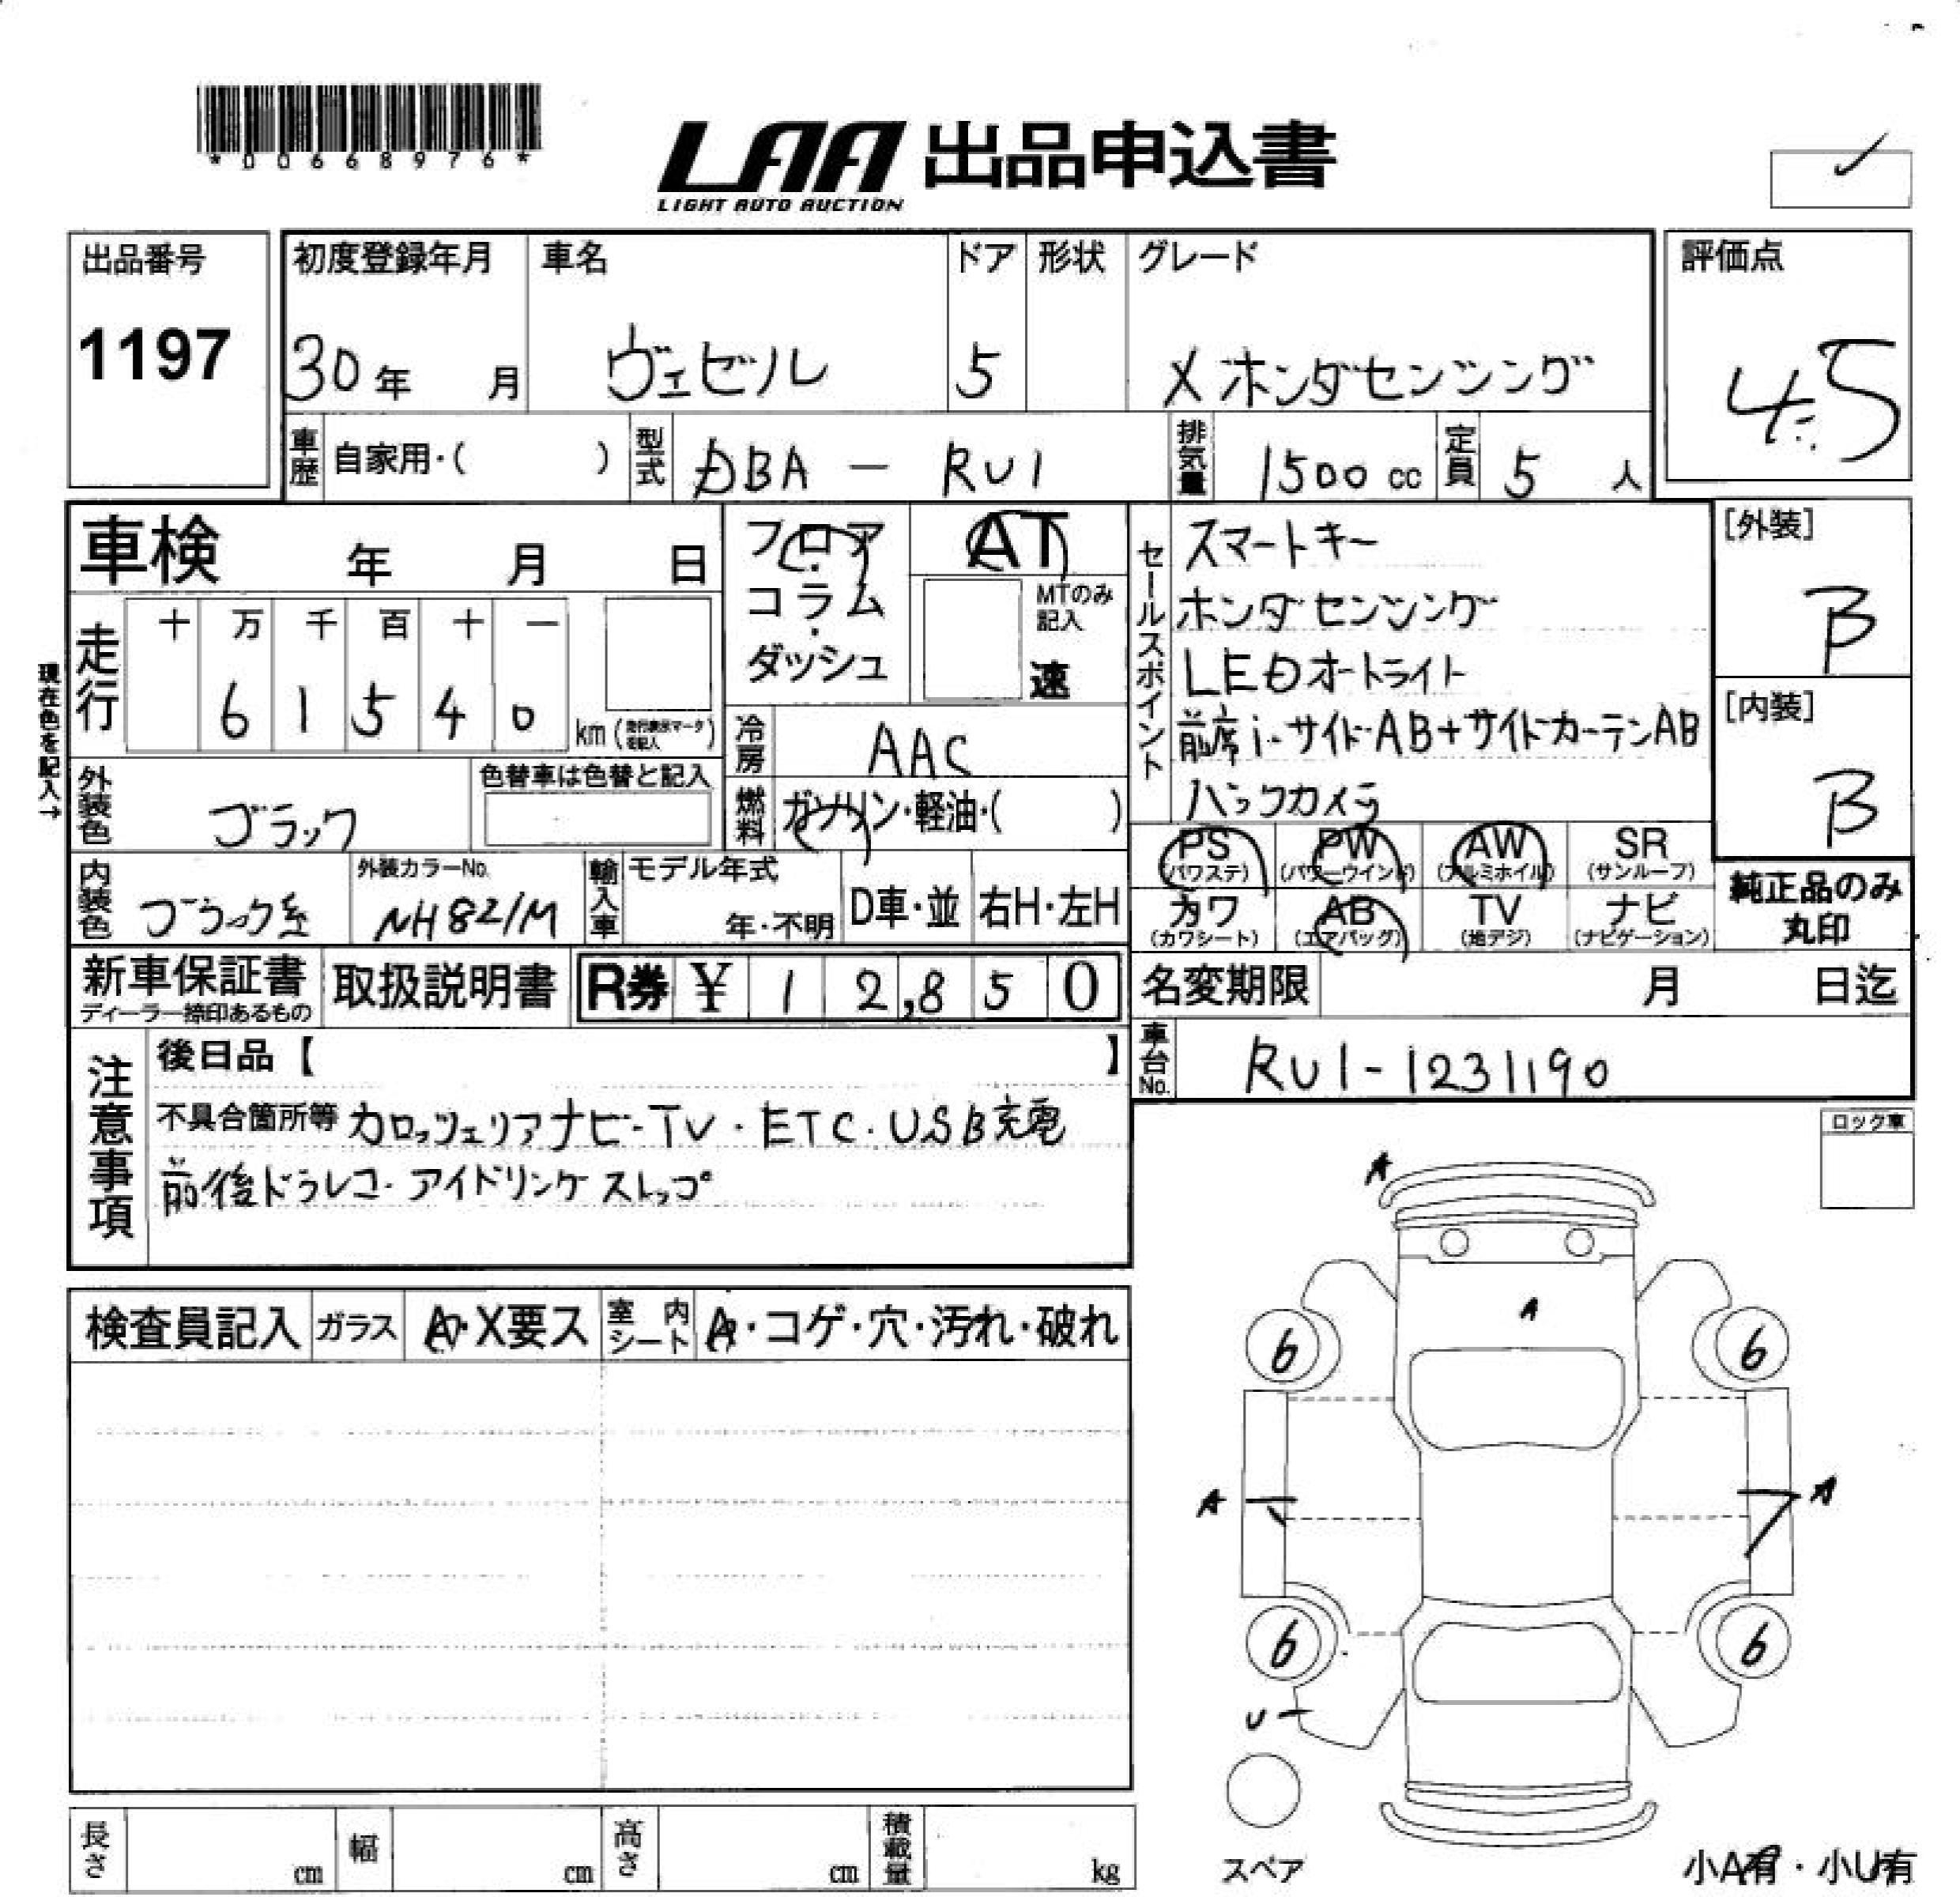 *00668976*
LAA 出品申込書
LIGHT AUTO AUCTION
出品番号
1197
初度登録年月
30年 月
車名
ヴェゼル
ドア
5
形状
グレード
X ホンダセンシング
評価点
4.5
車歴 自家用・( )
型式 DBA - RU1
排気量 1500 cc
定員 5 人
車検 年 月 日
現在色を記入→
走行
十 万 千 百 十 一
6 1 5 4 0
km
外装色 ブラック
色替車は色替と記入
内装色 ブラック系
外装カラーNo. NH821M
輸入車
モデル年式
年・不明
D車・並
右H・左H
フロア・コラム・ダッシュ
AT
MTのみ記入
速
冷房 AAC
燃料 ガソリン・軽油・( )
セールスポイント
スマートキー
ホンダセンシング
LEDオートライト
前席i-サイドAB+サイドカーテンAB
バックカメラ
[外装]
B
[内装]
B
PS (パワステ)
PW (パワーウインド)
AW (アルミホイル)
SR (サンルーフ)
カワ (カワシート)
AB (エアバッグ)
TV (地デジ)
ナビ (ナビゲーション)
純正品のみ
丸印
新車保証書
ディーラー捺印あるもの
取扱説明書
R券 ¥ 12,850
名変期限 月 日迄
車台No. RU1-1231190
注意事項
後日品【 】
不具合箇所等 カロッツェリアナビ-TV・ETC・USB充電
前後ドラレコ・アイドリングストップ
ロック車
検査員記入
ガラス A・X要ス
室内シート A・コゲ・穴・汚れ・破れ
A
A
6 6
A A
6 6
U
スペア
小A有・小U有
長さ cm
幅 cm
高さ cm
積載量 kg